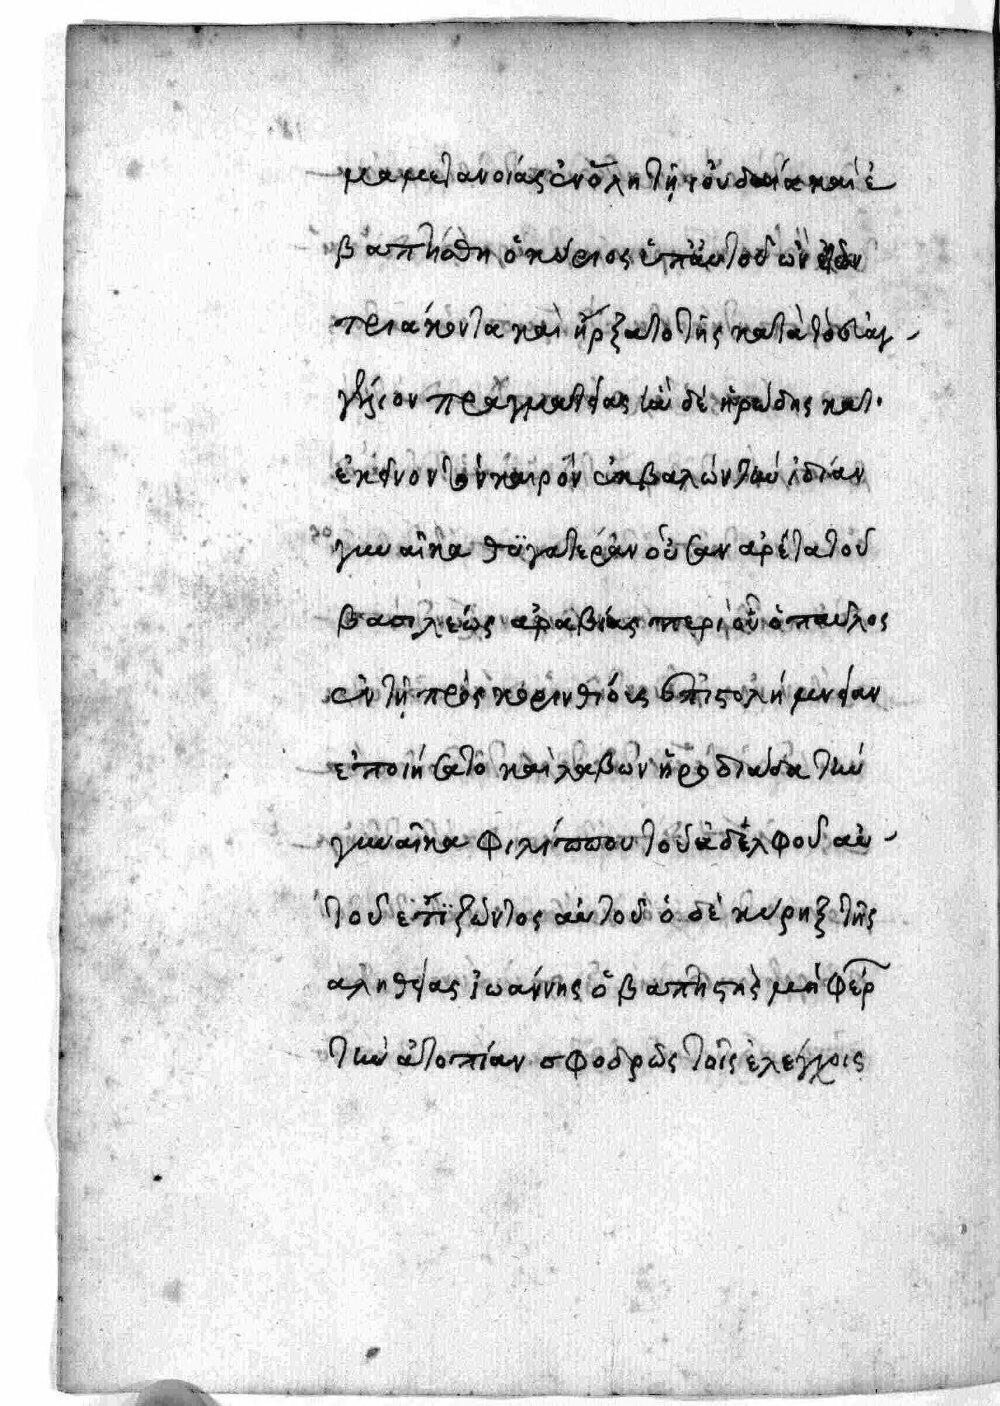 μα μετανοίας ἐν ὅλη τῇ ἰουδαία καὶ ἐ
βαπτήσθη ὁ κύριος ὑπ' αὐτοῦ ὢν ἐτῶν
τριάκοντα καὶ ἤρξατο τῆς κατὰ τὸ εὐαγ
γέλιον πραγματείας ὁ δὲ ἡρώδης κατ'
ἐκεῖνον τὸν καιρὸν ἐκβαλὼν τὴν ἰδίαν
γυναῖκα θυγατέραν οὖσαν ἀρέτα τοῦ
βασιλέως ἀραβίας περὶ οὗ ὁ παῦλος
ἐν τῇ πρὸς κορινθίοις ἐπιστολή μνείαν
ἐποιήσατο καὶ λαβὼν ἡρωδιάδα τὴν
γυναῖκα φιλίππου τοῦ ἀδελφοῦ αὐ
τοῦ ἔτι ζῶντος αὐτοῦ ὁ δὲ κύρηξ τῆς
ἀληθείας ἰωάννης ὁ βαπτηστὴς μὴ φέρ
τὴν ἀτοπίαν σφοδρῶς τοῖς ἐλέγχοις